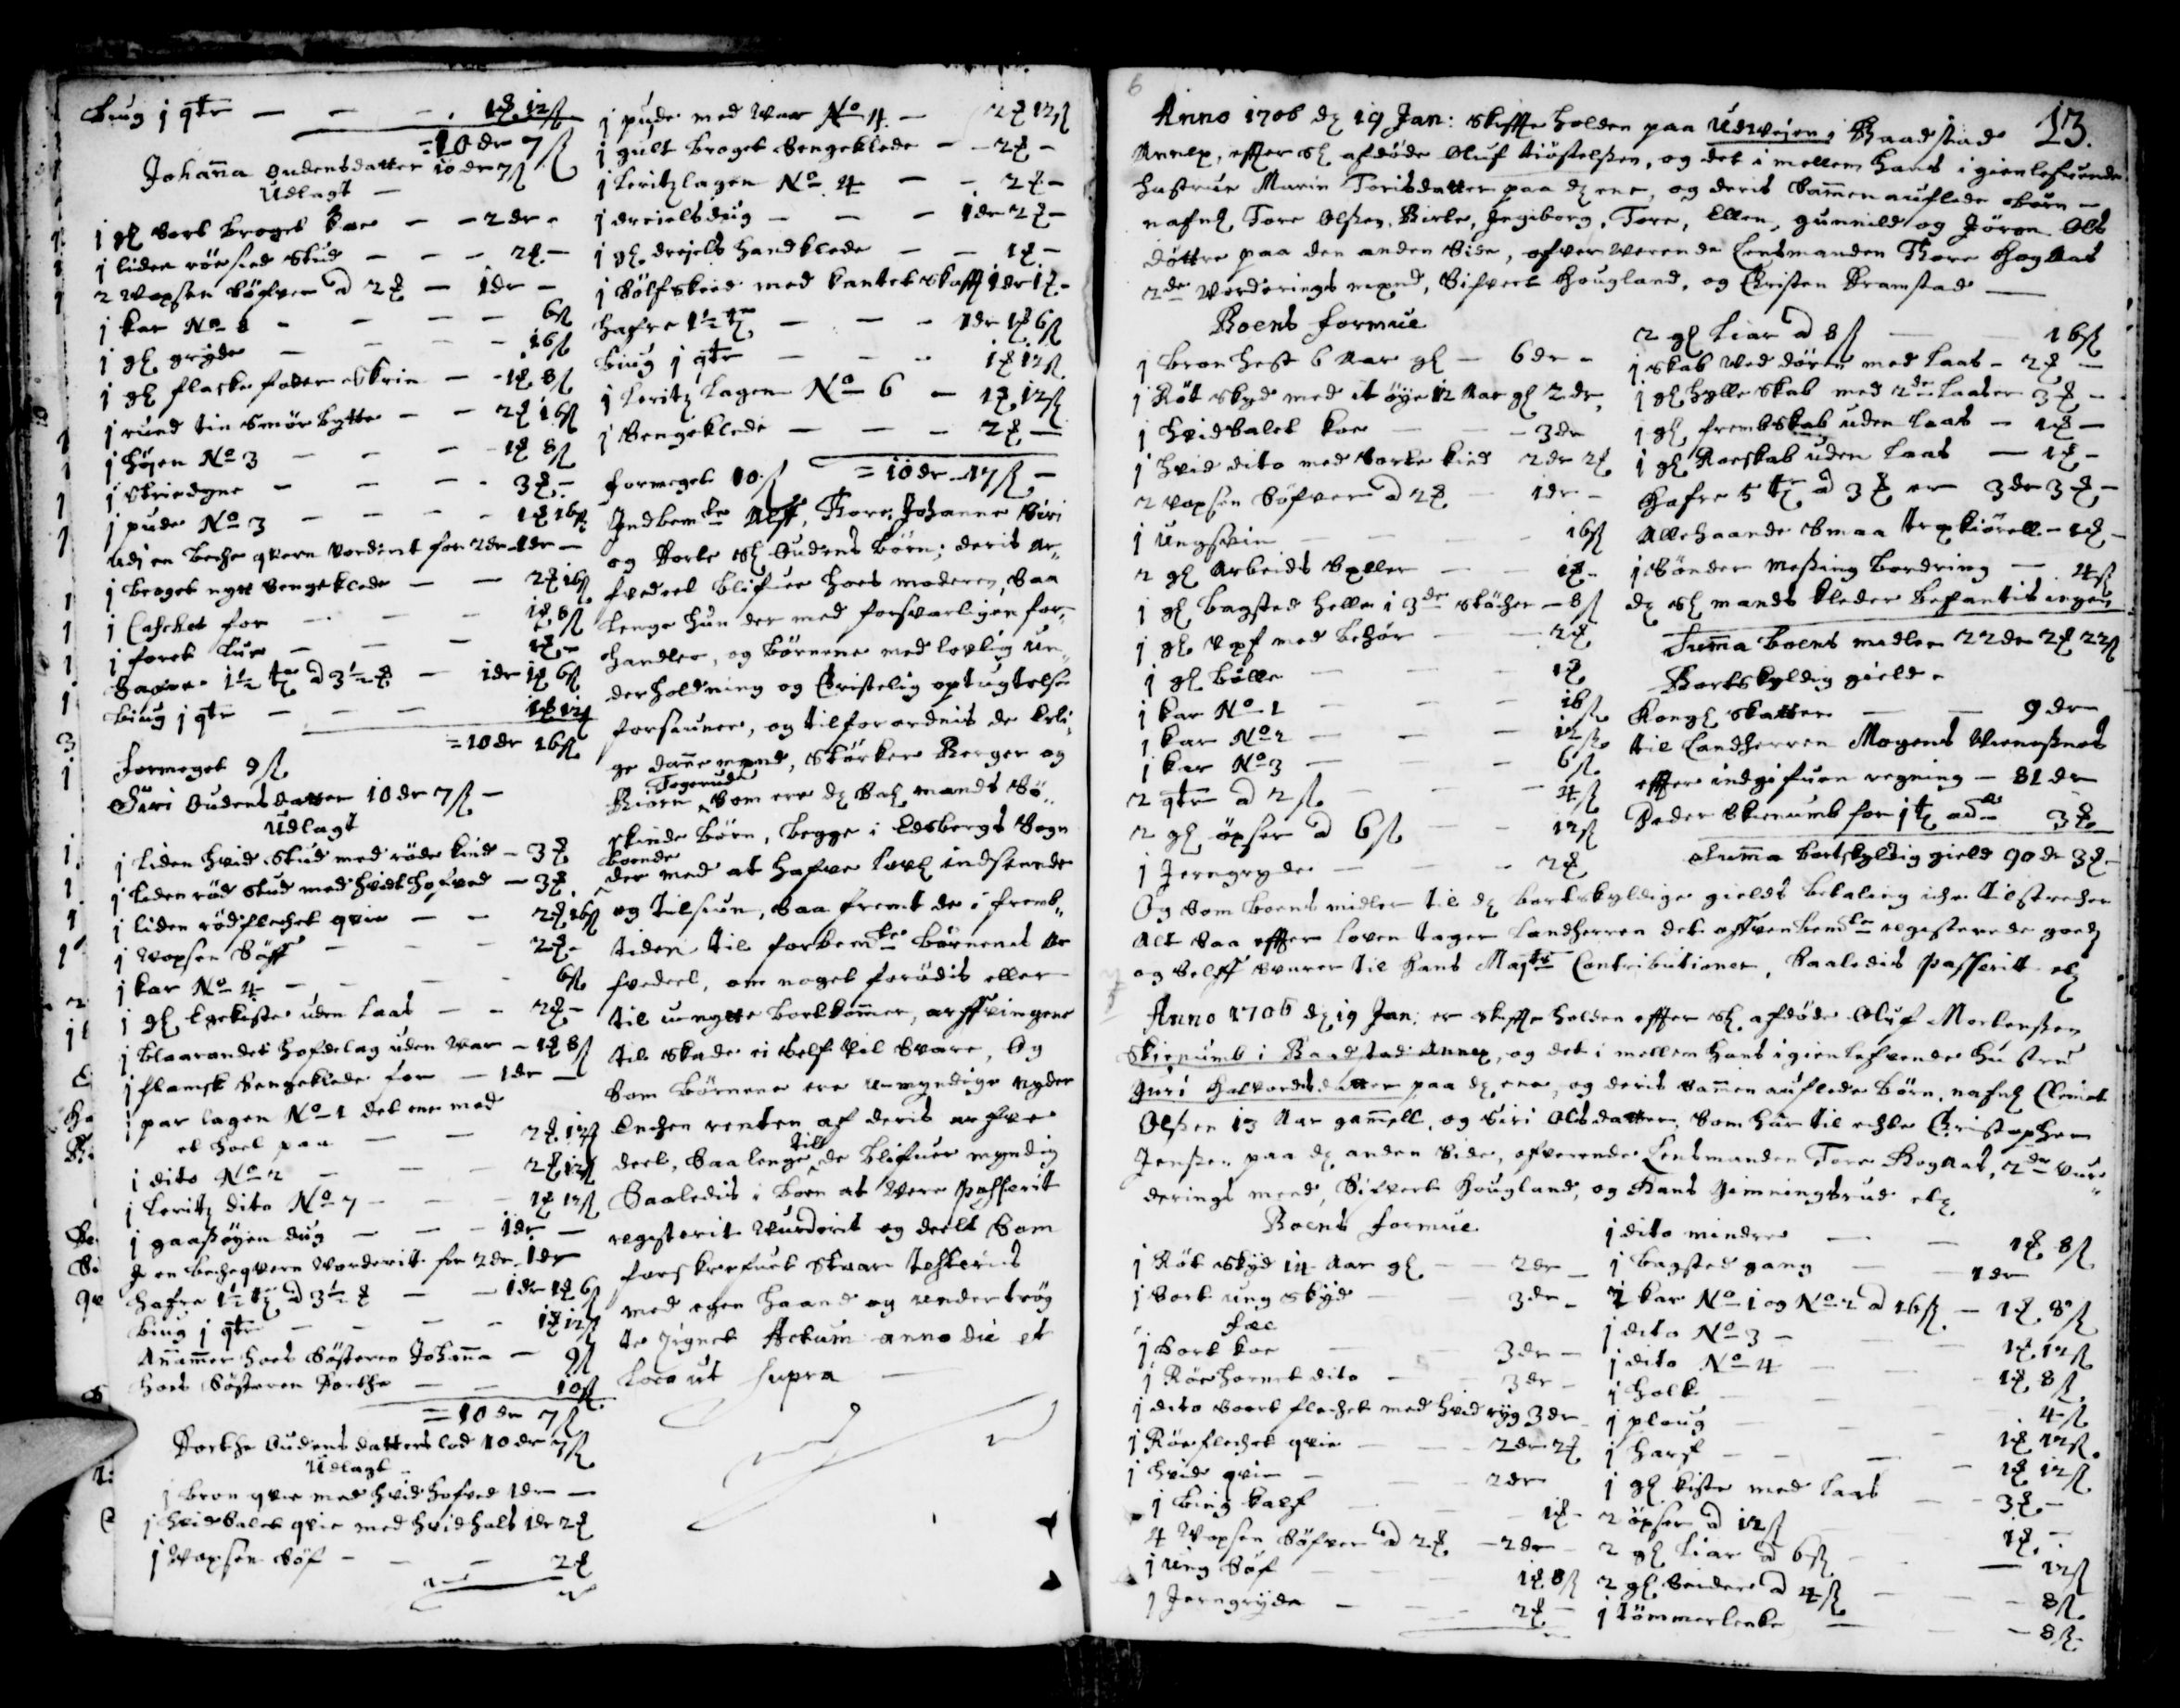 biug j qtr — 1 ℥ 12 ß
= 10 dr 7 ß
Johanna Oudensdatter 10 dr 7 ß
Udlagt —
j gl sort broget koe — 2 dr -
j liden röe sied stud — 2 ℥ -
2 voxsen söfver a 2 ℥ — 1 dr -
j kar No 8 — 6 ß
j gl gryde — 16 ß
j gl flaske foder skrin — 1 ℥ 8 ß
j rund tin smör bytte — 2 ℥ 16 ß
j höyen No 3 — 1 ℥ 8 ß
j skrin — 3 ℥ -
j pude No 3 — 1 ℥ 16 ß
udj en beche qvern vorderit for 2 dr - 1 dr —
j broget nytt sengeklede — 2 ℥ 16 ß
j Caschet for — 1 ℥ 8 ß
j foret — 1 ℥ -
hafre 1½ tø a 3½ ℥ — 1 dr 1 ℥ 6 ß
biug j qtr — 1 ℥ 12 ß
= 10 dr 16 ß
formeget 9 ß
Siri Oudensdatter 10 dr 7 ß —
Udlagt
j liden hvid stud med röde kind — 3 ℥
j liden röd stud med hvidt hofved — 3 ℥
j liden rödflechet qvie — 2 ℥ 16 ß
j voxsen söff — 2 ℥ -
j kar No 4 — 6 ß
j gl Egekiste uden laas — 2 ℥ -
j blaarandet hofdelag uden var — 1 ℥ 8 ß
j flamsk sengeklede for — 1 dr —
j par lagen No 1 det ene med
et hoel paa — 2 ℥ 12 ß
j dito No 2 — 2 ℥ 12 ß
j leritz dito No 7 — 1 ℥ 12 ß
j gaasöyen dug — 1 dr —
J en becheqvern vorderit for 2 dr 1 dr
hafre 1½ tø a 3½ ℥ — 1 dr 1 ℥ 6 ß
biug j qtr — 1 ℥ 12 ß
Annammer hoes Söstren Johanna — 9 ß
hoes Söstren Dorthe — 10 ß
= 10 dr 7 ß
Dorthe Oudensdatters lod 10 dr 7 ß
Udlagt —
j bron qvie med hvid hofved 1 dr —
j hvidsalet qvie med hvid hals 1 dr 2 ℥
j voxsen söf — 2 ℥
j pude med var No 4 — 2 ℥ 12 ß
j gult broget sengeklede — 2 ℥ —
j leritzlagen No 4 — 2 ℥ —
j dreielsdug — 1 dr 2 ℥ —
j gl dreiels handklede — 1 ℥ —
j sölfskeed med kantet skaff 1 dr 1 ℥ -
hafre 1½ tø — 1 dr 1 ℥ 6 ß
biug j qtr — 1 ℥ 12 ß
j leritz lagen No 6 — 1 ℥ 12 ß
j sengeklede — 2 ℥ —
formeget 10 ß = 10 dr 17 ß —
Indbemte Alff, Tore, Johanne Siri
og Dorte Sl Oudens börn; deris ar-
fvedeel blifuer hoes moderen, saa
lenge hun der med forsvarligen for-
handler, og börnene med lovlig un-
derholdning og Christelig optugtelse
forsiuner, og tilforordnis de erli-
ge dannemænd, Störker Berger og
Biörn Togerud som ere dz Sal mands Sö-
skinde börn, begge i Edsbergs Sogn
boende
der med at hafve lovl indseende
og tilsiun, saa fremt de i fremb-
tiden til forbemte börnenes ar
fvedeel, om noget forödis eller
til unytte bortkommer, arffvingene
til skade ei self vil svare, Og
som börnene ere umyndige nyder
Enchen renten af deris arfve
deel, saalenge till de blifuer myndig
Saaledis i boen at vere passerit
registerit vurderit og deelt som
forskrefuet staar testeris
med egen haand og undertrög
te signet Actum anno die et
loco ut supra —
6
13.
Anno 1706 dz 19 Jan: skiffte holden paa Udvejen i Baadstad
Annex, effter Sl afdöde Oluf Kiöstelsen, og det imellem hans igienlefvende
hustrue Marin Torisdatter paa dz ene, og deris sammenauflede börn —
nafnl Tore Olssen, Birte, Ingeborg, Tore, Ellen, gunnild og Jöron Ols
döttre paa den anden Side, ofververende Lensmanden Tore Hog Aas
2de vorderings mænd, Sifvert Hougland, og Christen Kramstad —
Boens formue
j bron hest 6 aar gl — 6 dr -
j Röt skyd med it öye 12 aar gl 2 dr
j hvidsalet koe — 3 dr
j hvid dito med sorte kind 2 dr 2 ℥
2 voxsen söfver a 2 ℥ — 1 dr -
j ungsvin — 16 ß
2 gl arbeids seller — 1 ℥ -
j gl bagsted helle i 3de stöcher — 8 ß
j gl med behör — 2 ℥
j gl bölle — 1 ℥
j kar No 1 — 16 ß
j kar No 2 — 12 ß
j kar No 3 — 6 ß
2 qtr a 2 ß — 4 ß
2 gl öxser a 6 ß — 12 ß
j Jerngryde — 2 ℥
2 gl liar a 8 ß — 16 ß
j skab ved dören med laas — 2 ℥ —
j gl hylle skab med 2de laaser 3 ℥ -
j gl frembskab uden laas — 1 ℥ —
j gl Roeskab uden laas — 1 ℥ -
hafre 5 tø a 3 ℥ er 3 dr 3 ℥ -
Allehaande smaa trækiörell — 1 ℥ -
j sönder messing bordring — 4 ß
dz Sl mands kleder befantis ingen
Summa boens midler 22 dr 2 ℥ 22 ß
Bortskyldig gield -
Kongl skatter — 9 dr
til Landherren Mogens
effter indgifuen regning — 81 dr
Peder Skienumb for j tø — 3 ℥
Summa bortskyldig gield 90 dr 3 ℥
Og som boens midler til dz bortskyldige gields betaling iche tilstrecher
Alt saa effter loven tager landherren det ofvenbemte registerede goedz
og self svarer til Hans Majts Contributioner, saaledis passerit etz
Anno 1706 dz 19 Jan: er skiffte holden effter Sl afdöde Oluf Mortenssen
Skienumb i Baadstad Annex, og det imellem hans igienlefvende hustru
Guri Halvordsdatter paa dz ene, og deris sammenauflede börn, nafnl Clemet
Olssen 13 Aar gammell, og Siri Olsdatter, som har til echte Christopher
Jenssen paa dz anden Side, ofverende Lensmanden Tore Hog Aas, 2de vur-
derings mend, Sifvert Hougland, og Hans Gimmingsrud etz
Boens formue
j Röt skyd 14 Aar gl — 2 dr —
j sort ung skyd — 3 dr -
fæe
j sort koe — 3 dr —
j Röehornet dito — 3 dr —
j dito soort flechet med hvid ryg 3 dr
j Röeflechet qvie — 2 dr 2 ℥
j hvid qvie — 2 dr
j bing kalf — 1 ℥ -
4 voxsen söfver a 2 ℥ — 2 dr —
j ung söf — 1 ℥ 8 ß
j Jerngryde — 2 ℥ —
j dito mindre — 1 ℥ 8 ß
j bagsted gang — 1 dr
2 kar No 1 og No 2 a 16 ß — 1 ℥ 8 ß
j dito No 3 — 1 ℥ 12 ß
j dito No 4 — 1 ℥ 8 ß
j holk — 4 ß
j ploug — 1 ℥ 12 ß
j harf — 1 ℥ 12 ß
j gl kiste med laas — 3 ℥ -
2 öxser a 12 ß — 1 ℥ -
2 gl liar a 6 ß — 12 ß
2 gl a 4 ß — 8 ß
j tömmerlenke — 8 ß